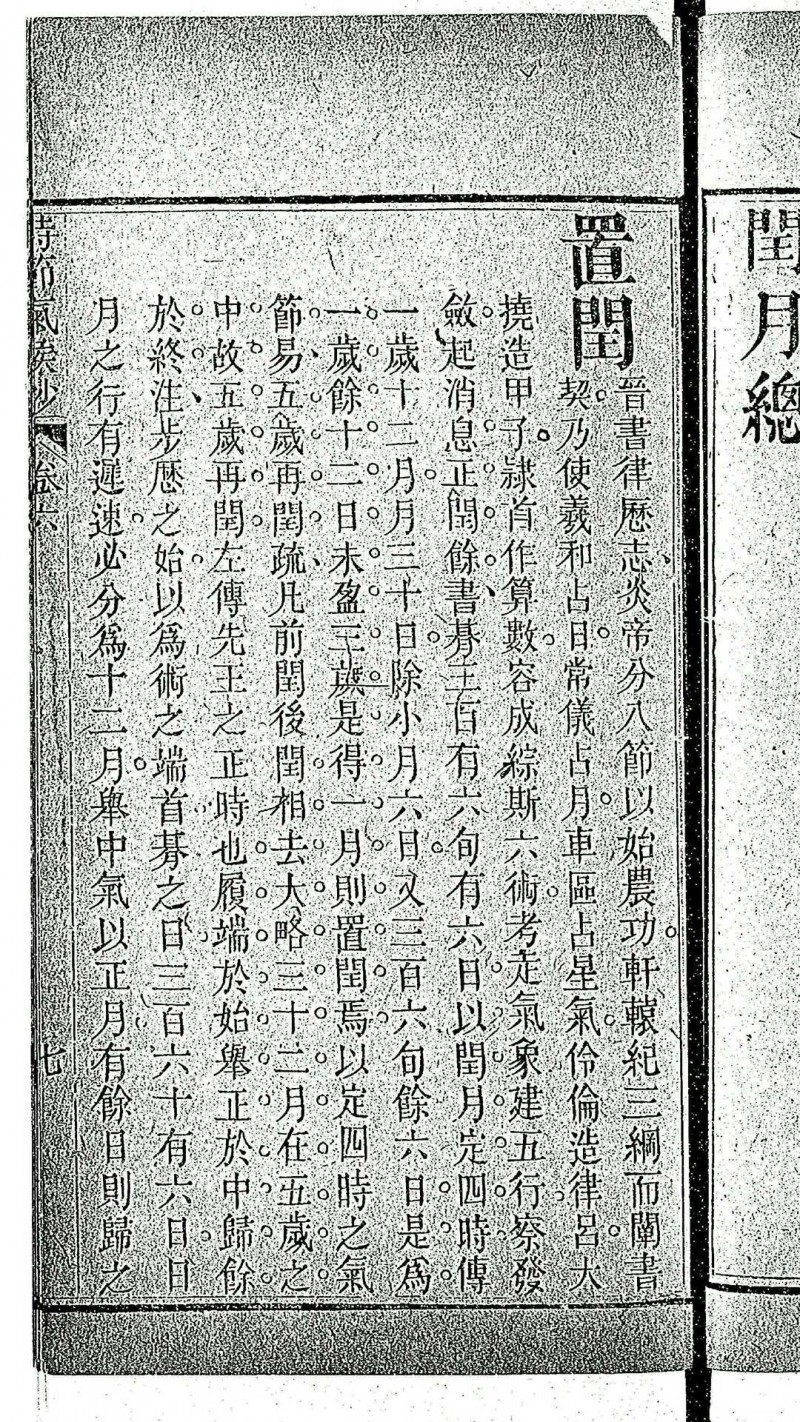 閏月總
置閏
晉書律歷志炎帝分八節以始農功軒轅紀三綱而闡書
契乃使羲和占日常儀占月車區占星氣伶倫造律呂大
撓造甲子隸首作算數容成綜斯六術考定氣象建五行察發
斂起消息正閏餘書朞三百有六旬有六日以閏月定四時傳
一歲十二月月三十日除小月六日又三百六旬餘六日是爲
一歲餘十二日未盈三歲是得一月則置閏焉以定四時之氣
節易五歲再閏疏凡前閏後閏相去大略三十二月在五歲之
中故五歲再閏左傳先王之正時也履端於始舉正於中歸餘
於終注步歷之始以爲術之端首朞之日三百六十有六日日
月之行有遲速必分爲十二月舉中氣以正月有餘日則歸之
時節氣候抄 卷六 七